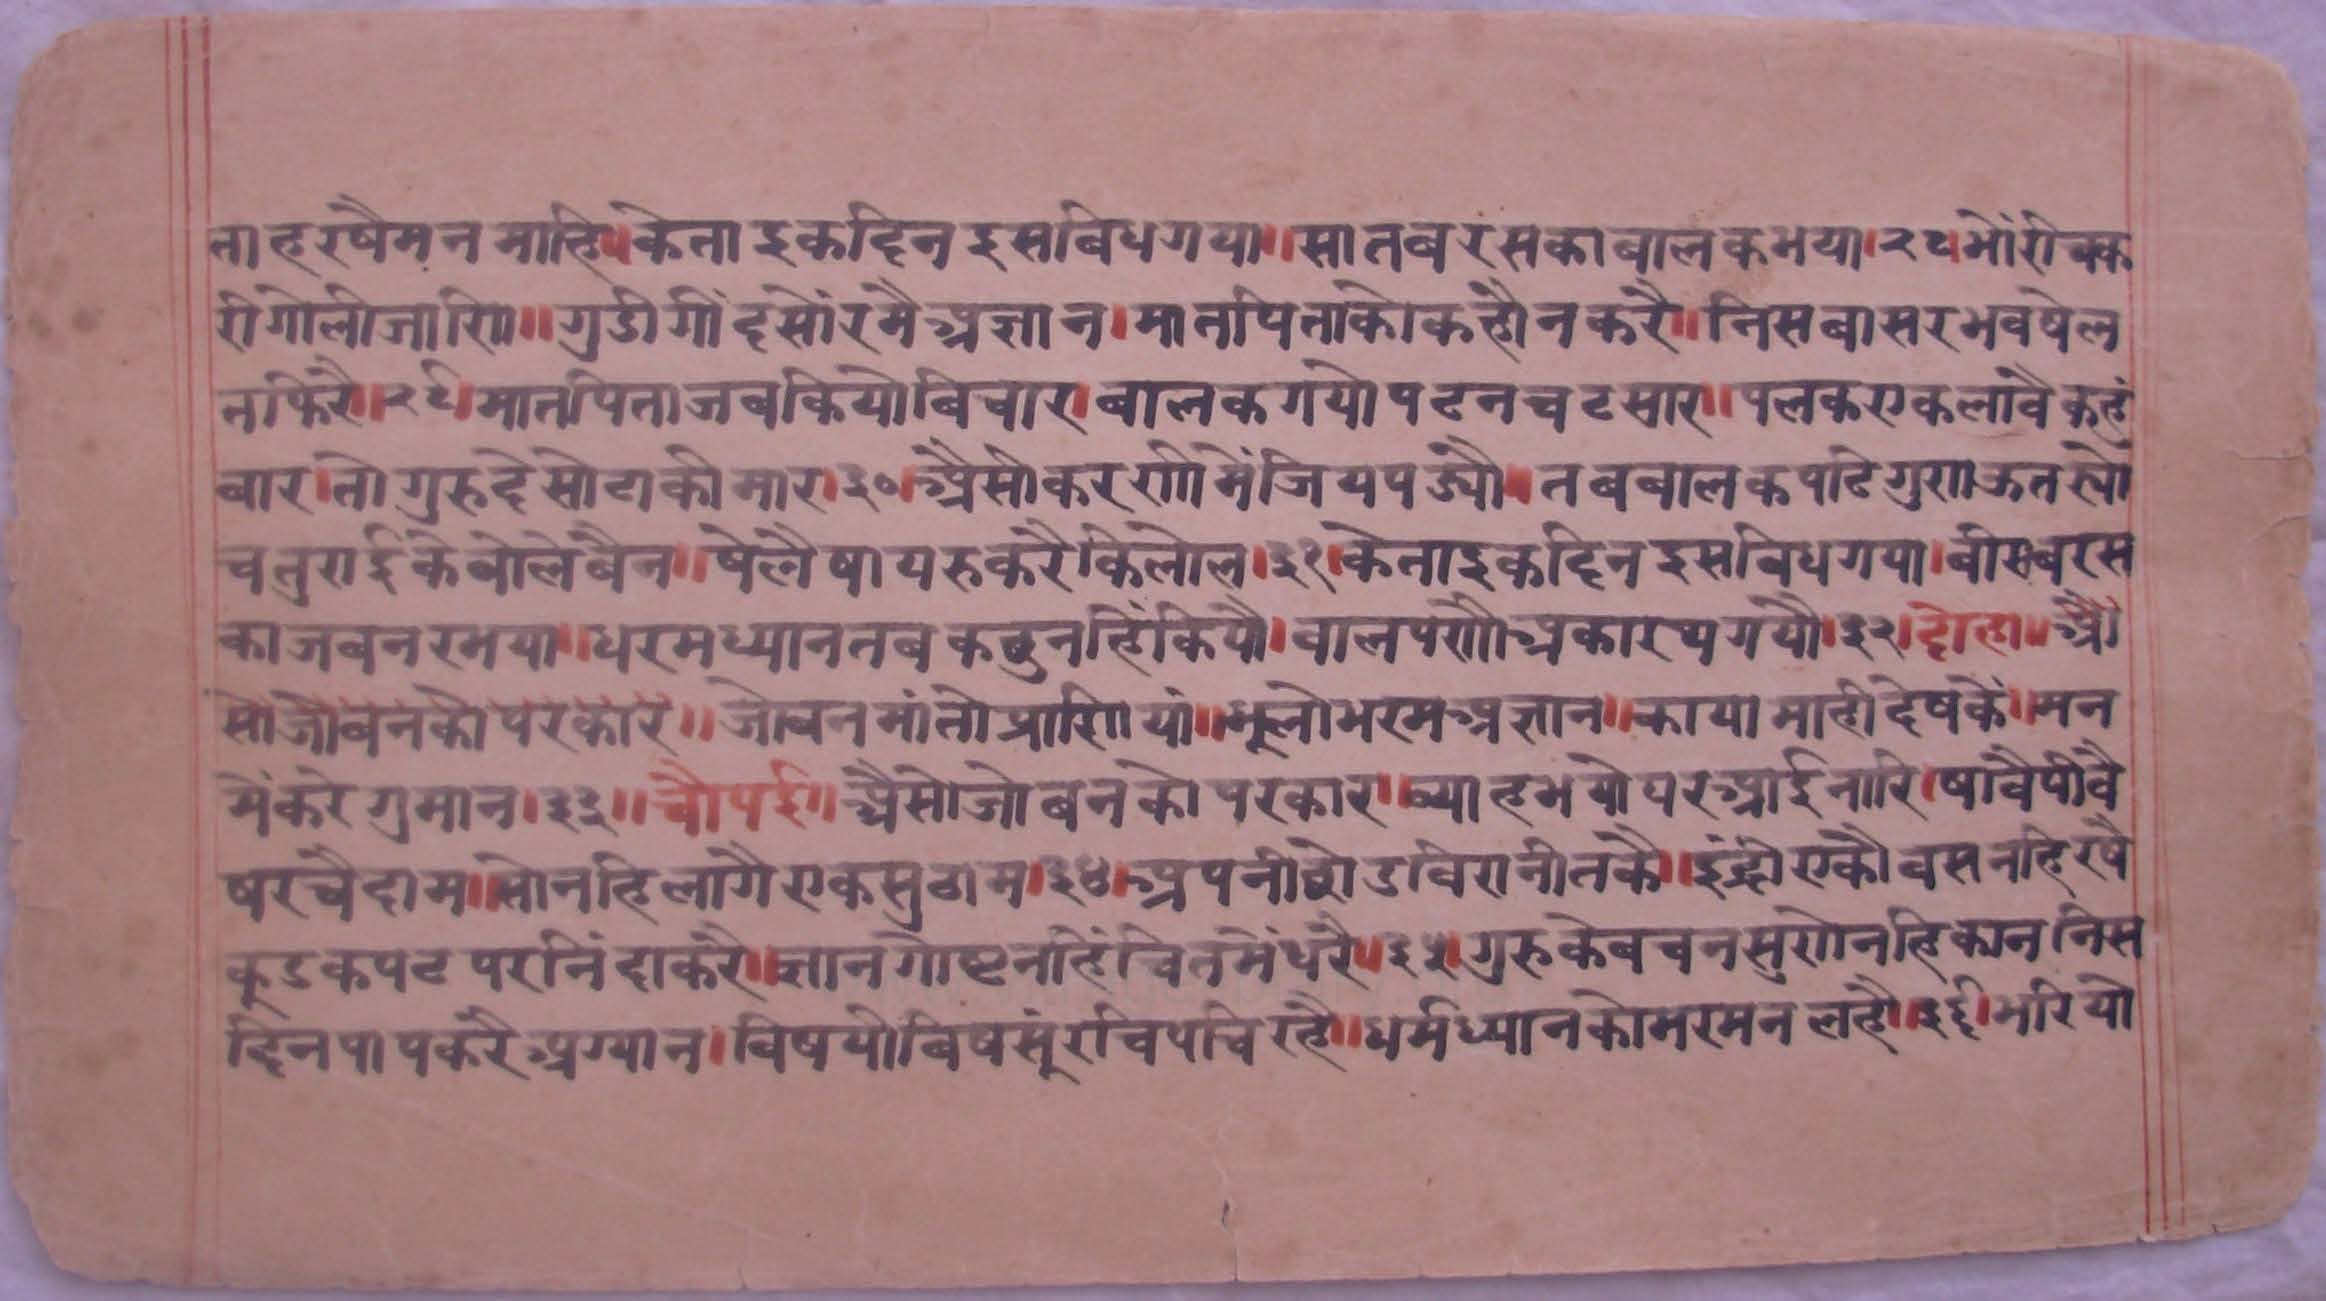 ताहरषैमनमाहि॥केताइकदिनइसबिधगया॥सातबरसकाबालकभया।२८।भोंरीचक
रीगोलीजारिण॥गुडीगींदसोंरमैअज्ञान।मातपिताकोकह्यौनकरै॥निसबासरभवषेल
तफिरै॥२९।मातपिताजबकियोबिचार।बालकगयोपटनचटसार॥पलकएकलावैकहुं
बार।तोगुरुदेसोटाकीमार।३०।अैसीकरणीमेंजियपड्यौ॥तबबालकपढिगुणऊतस्यो
चतुराईकेबोलेबैन॥षेलैषायरुकरैकिलोल।३१।केताइकदिनइसबिधगया।बीसबरस
काजबनरभया॥धरमध्यानतबकछुनहिंकियौ।बालपणौअकारथगयौ।३२।दोहा॥अै
सोजोबनकोपरकार॥जोबनमांतोप्राणियां॥भूलोभरमअज्ञान॥कायामाहीदेषकें॥मन
मेंकरेगुमान।३३॥चौपई॥अैसोजोबनकोपरकार॥ब्याहभयोघरआईनारि।षावैपीवै
षरचैदाम॥सोनहिलागैएकसुठाम।३४।अपनीछोडविरानीतकै॥इंद्रीएकौवसनहिरषै
कूडकपटपरनिंदाकरै॥ज्ञानगोष्टनहिंचितमेंधरै॥३५।गुरुकेबचनसुणेनहिकाननिस
दिनपापकरैअग्यान।विषयीबिषसूंरचिपचिरहै॥धर्मध्यानकोमरमनलहै॥३६।भरियो